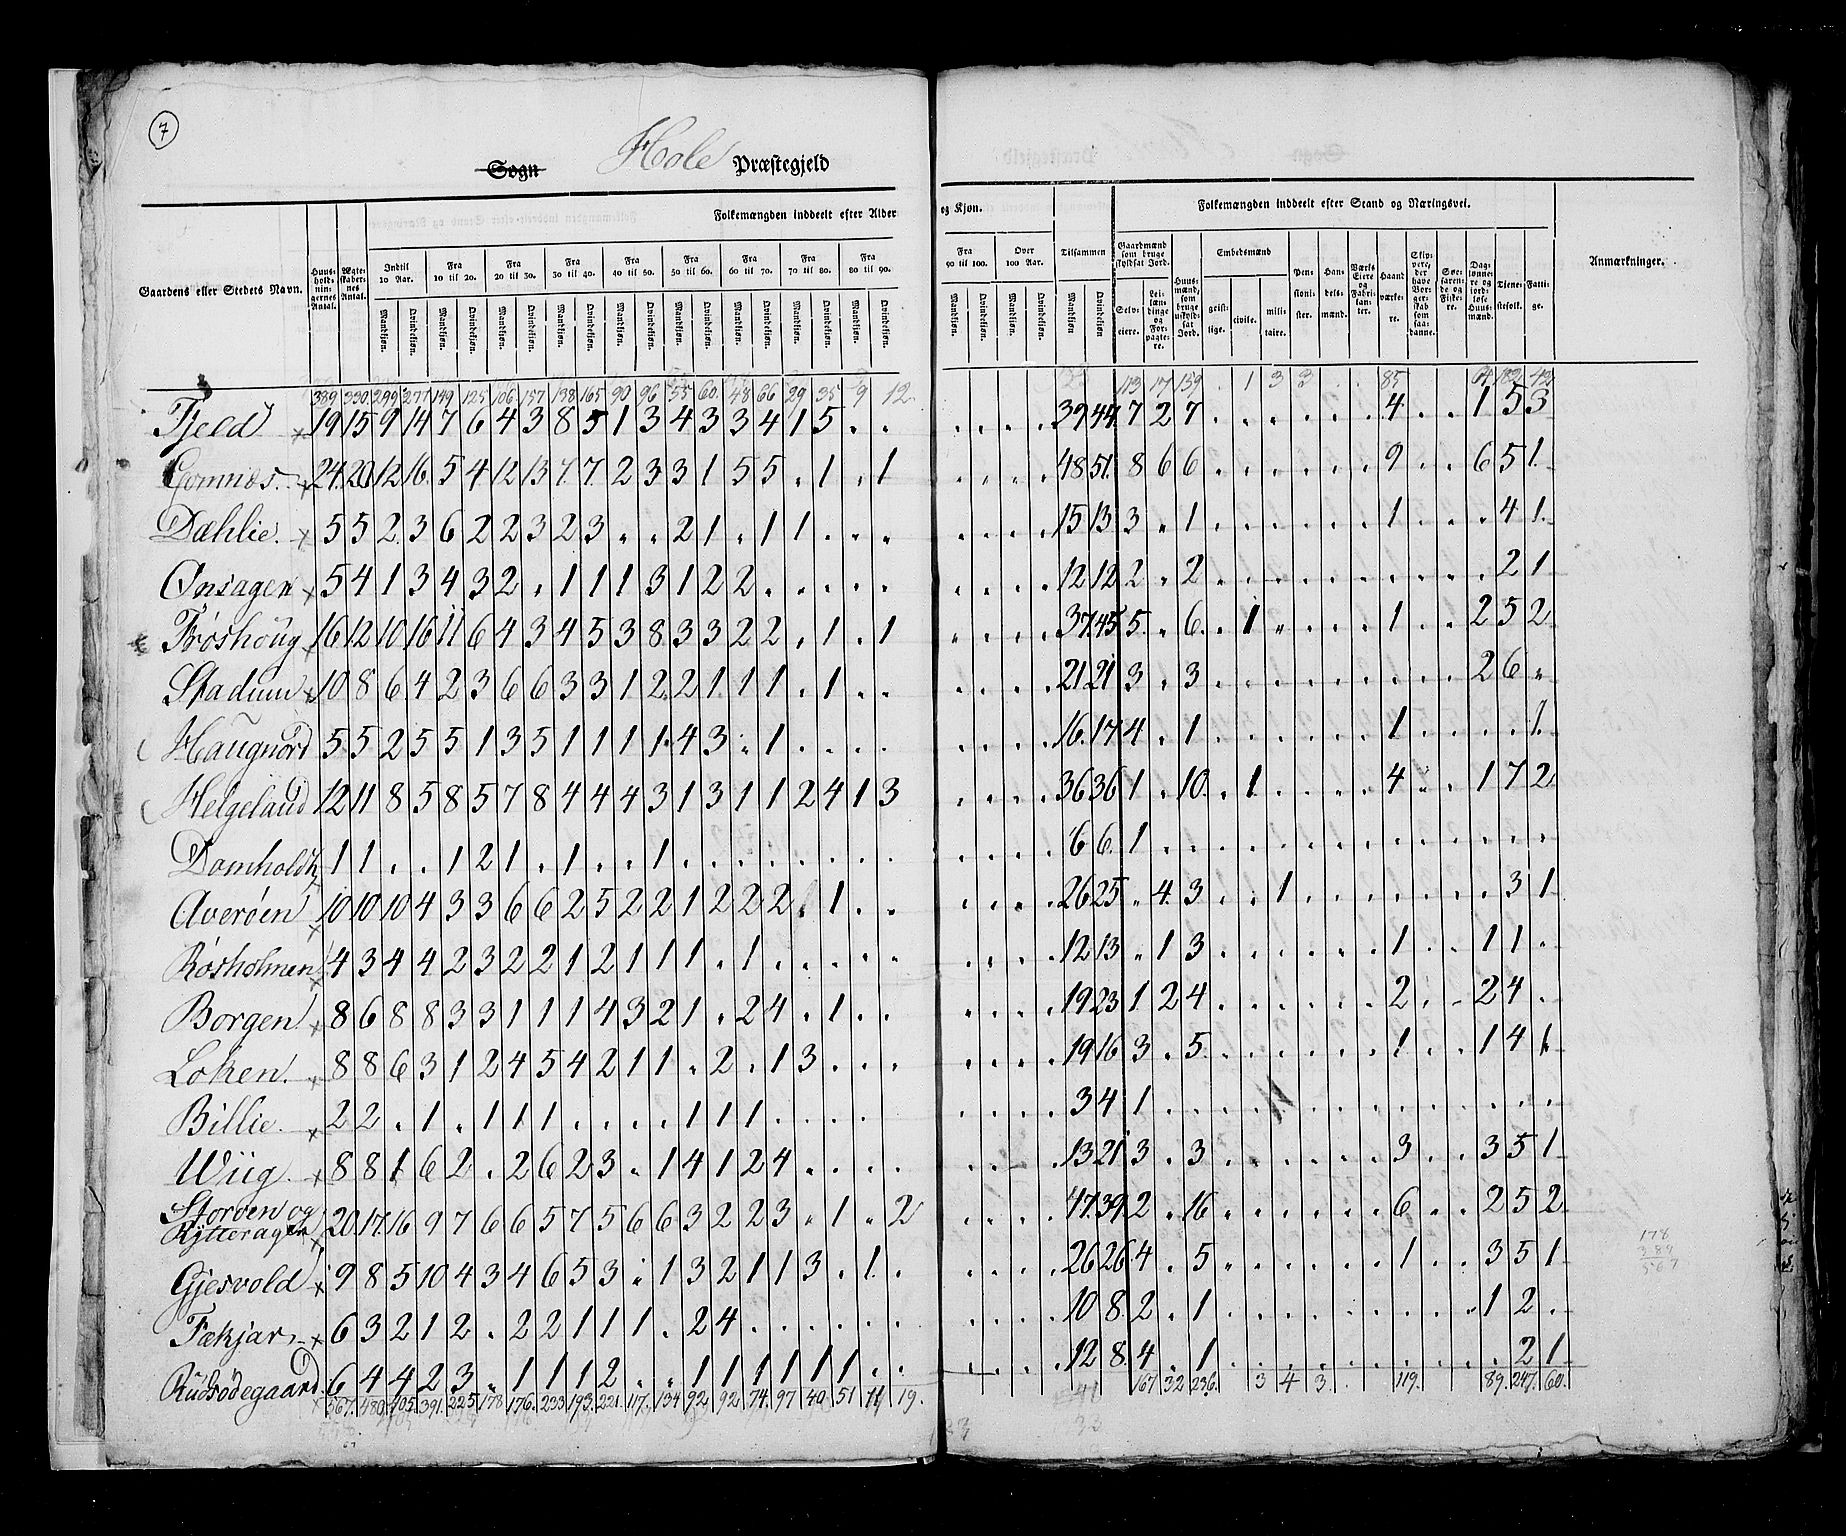 7
Sogn Hole Præstegjeld
Folkemængden inddeelt efter Alder og Kjøn. Folkemængden inddeelt efter Stand og Næringsvei.
Gaardens eller Stedets Navn. Huus-holdnin-gernes Antal. Ægte-skaber-nes Antal. Indtil 10 Aar. Fra 10 til 20. Fra 20 til 30. Fra 30 til 40. Fra 40 til 50. Fra 50 til 60. Fra 60 til 70. Fra 70 til 80. Fra 80 til 90. Fra 90 til 100. Over 100 Aar. Tilsammen Gaardmænd som bruge skyldsat Jord. Huus-mænd, som bruge uskyld-sat Jord. Embedsmænd Pen-sioni-ster. Han-dels-mænd. Værks Eiere og Fabri-kan-ter. Haand værke-re. Skip-pere, der have Bor-ger-skab som saa-danne. Søe-faren-de og Fiske-re. Dag-lønne-re og jord-løse Huus-mænd. Tjene-stefolk. Fatti-ge. Anmærkninger.
Mandkjøn. Qvindekjøn. Selv-eiere. Lei-lænd-inge og For-pagte-re. geist-lige. civile. mili-taire.
389 330 299 277 149 125 106 157 138 165 90 96 55 60 48 66 29 35 9 12 113 17 159 . 1 3 3 . . 85 64 182 42
Fjeld 19 15 9 14 7 6 4 3 8 5 1 3 4 3 3 4 1 5 . . . . . . 39 44 7 2 7 . . . . . . 4 . . 1 5 3
Gomnæs. 24 20 12 16 5 4 12 13 7 7 2 3 3 1 5 5 . 1 . 1 . . . . 48 51 8 6 6 . . . . . . 9 . . 6 5 1
Dæhlie. 5 5 2 3 6 2 2 3 2 3 . . 2 1 . 1 1 . . . . . . . 15 13 3 . 1 . . . . . . 1 . . . 4 1
Onsagen 5 4 1 3 4 3 2 . 1 1 1 3 1 2 2 . . . . . . . . . 12 12 2 . 2 . . . . . . . . . . 2 1
Frøshoug 16 12 10 16 11 6 4 3 4 5 3 8 3 3 2 2 . 1 . 1 . . . . 37 45 5 . 6 . 1 . . . . 1 . . 2 5 2
Stadum 10 8 6 4 2 3 6 6 3 3 1 2 2 1 1 1 . 1 . . . . . . 21 21 3 . 3 . . . . . . . . . 2 6 .
Haugnord 5 5 2 5 5 1 3 5 1 1 1 1 4 3 . 1 . . . . . . . . 16 17 4 . 1 . . . . . . 1 . . . . 1
Helgeland 12 11 8 5 8 5 7 8 4 4 4 3 1 3 1 1 2 4 1 3 . . . . 36 36 1 . 10 . 1 . . . . 4 . . 1 7 2
Domholdt 1 1 . . 1 2 1 . 1 . . 1 . . . . . . . . . . . . 6 6 1 . . . . . . . . . . . . . .
Averøen 10 10 10 4 3 3 6 6 2 5 2 2 1 2 2 2 . 1 . . . . . . 26 25 . 4 3 . . 1 . . . . . . . 3 1
Røsholmen 4 3 4 4 2 3 2 2 1 2 1 1 1 . 1 . . . . . . . . . 12 13 . 1 3 . . . . . . 1 . . 1 1 .
Borgen 8 6 8 8 3 3 1 1 1 4 3 2 1 . 2 4 . 1 . . . . . . 19 23 1 2 4 . . . . . . 2 . . 2 4 .
Loken. 8 8 6 3 1 2 4 5 4 2 1 1 . 2 . 1 3 . . . . . . . 19 16 3 . 5 . . . . . . 1 . . 1 4 1
Billie. 2 2 . 1 . 1 1 1 . . . . 1 1 1 . . . . . . . . . 3 4 1 . . . . . . . . . . . . . .
Wiig. 8 8 1 6 2 . 2 6 2 3 . 1 4 1 2 4 . . . . . . . . 13 21 3 . 3 . . . . . . 3 . . 3 5 1
Storøen og
Rytteragen 20 17 16 9 7 6 6 5 7 5 6 6 3 2 2 3 . 1 . 2 . . . . 47 39 2 . 16 . . . . . . 6 . . 2 5 2
Gjesvold 9 8 5 10 4 3 4 6 5 3 . 1 3 2 1 1 3 . 1 . . . . . 26 26 4 . 5 . . . . . . 1 . . 3 5 1
Fækjar 6 3 2 1 2 . 2 2 1 1 1 . 2 4 . . . . . . . . . . 10 8 2 . 1 . . . . . . . . . 1 2 .
Rudsødegaard. 6 4 4 2 3 . 1 1 1 2 . . 1 1 1 1 1 1 . . . . . . 12 8 4 . 1 . . . . . . . . . . 2 1
567 480 405 391 225 178 176 233 193 221 117 134 92 92 74 97 40 51 11 19 167 32 236 3 4 3 119 89 247 60
178
389
567